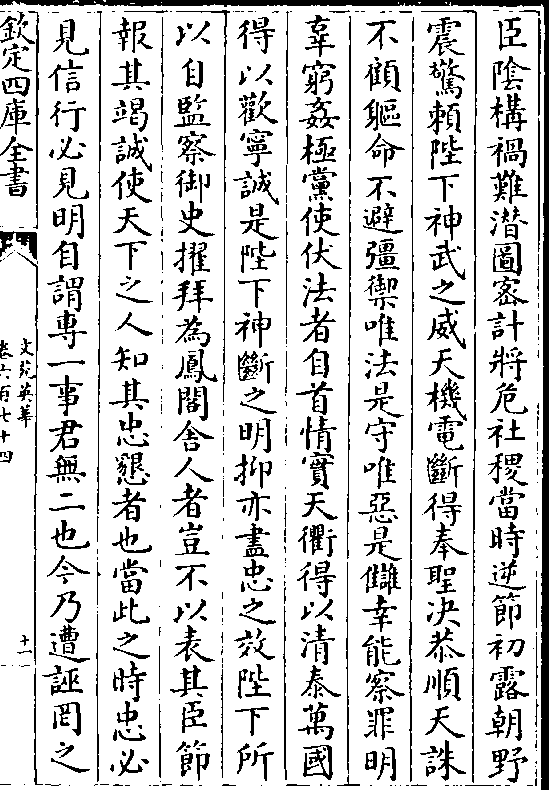 臣陰構禍難潛圖密計將危社稷當時逆節初露朝野
震驚賴陛下神武之威天機電斷得奉聖决恭順天誅
不顧軀命不避彊禦唯法是守唯惡是讎幸能察罪明
辜窮姦極黨使伏法者自首情實天衢得以清泰萬國
得以歡寧誠是陛下神斷之明抑亦盡忠之效陛下所
以自監察御史擢拜為鳳閣舍人者豈不以表其臣節
報其竭誠使天下之人知其忠懇者也當此之時忠必
見信行必見明自謂專一事君無二也今乃遭誣罔之
欽定四庫全書
文苑英華
卷六百七十四
十一